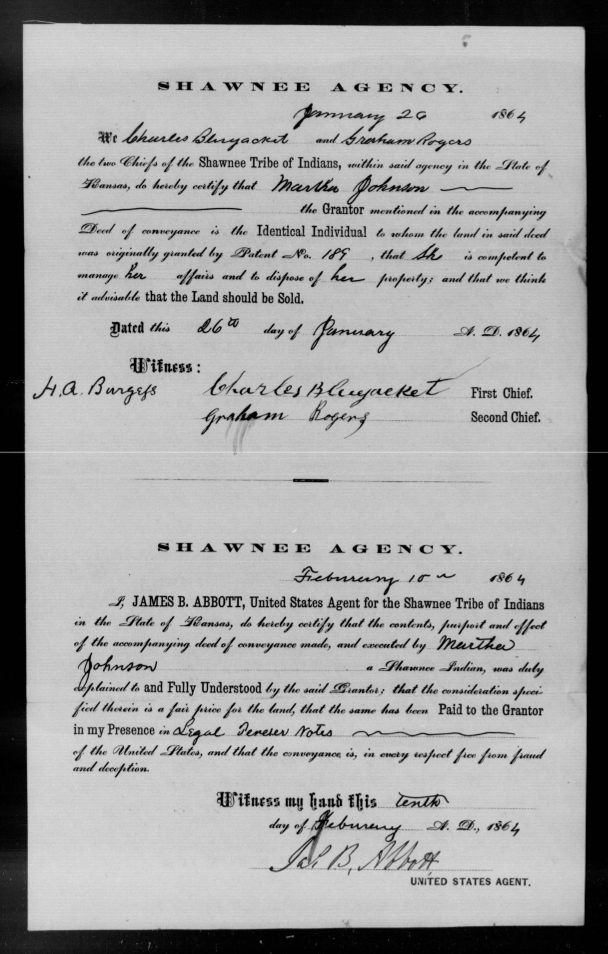 SHAWNEE AGENCY.
January 26 1864
We Charles Bluejacket and Graham Rogers
the two Chiefs of the Shawnee Tribe of Indians, within said agency in the State of
Kansas, do hereby certify that Martha Johnson
the Grantor mentioned in the accompanying
Deed of conveyance is the Identical Individual to whom the land in said deed
was originally granted by Patent No. 189, that She is competent to
manage her affairs and to dispose of her property; and that we think
it advisable that the Land should be Sold.
Dated this 26th day of January A. D. 1864
Witness:
H. A. Burgess Charles Bluejacket First Chief.
Graham Rogers Second Chief.
SHAWNEE AGENCY.
Feburery 10th 1864
I, JAMES B. ABBOTT, United States Agent for the Shawnee Tribe of Indians
in the State of Kansas, do hereby certify that the contents, purport and effect
of the accompanying deed of conveyance made, and executed by Martha
Johnson a Shawnee Indian, was duly
explained to and Fully Understood by the said Grantor; that the consideration speci-
fied therein is a fair price for the land, that the same has been Paid to the Grantor
in my Presence in Legal Tender Notes
of the United States, and that the conveyance is, in every respect free from fraud
and deception.
Witness my hand this tenth
day of Feburery A. D., 1864
Jas B. Abbott
UNITED STATES AGENT.